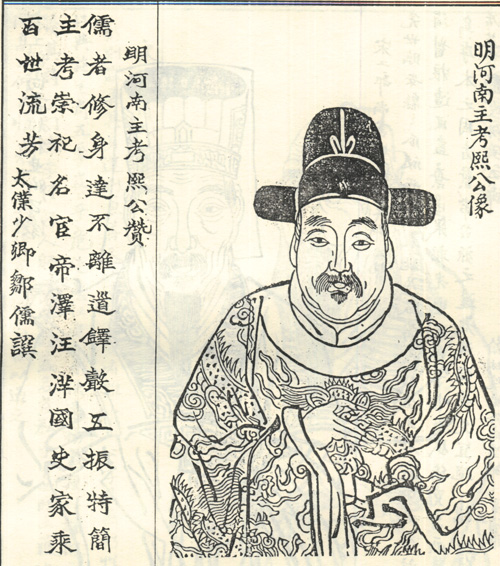 明河南主考熙公像
明河南主考熙公贊
儒者修身達不離道鐸敲五振特簡
主考崇祀名官帝澤汪洋國史家乘
百世流芳 太僕少卿鄒儒譔